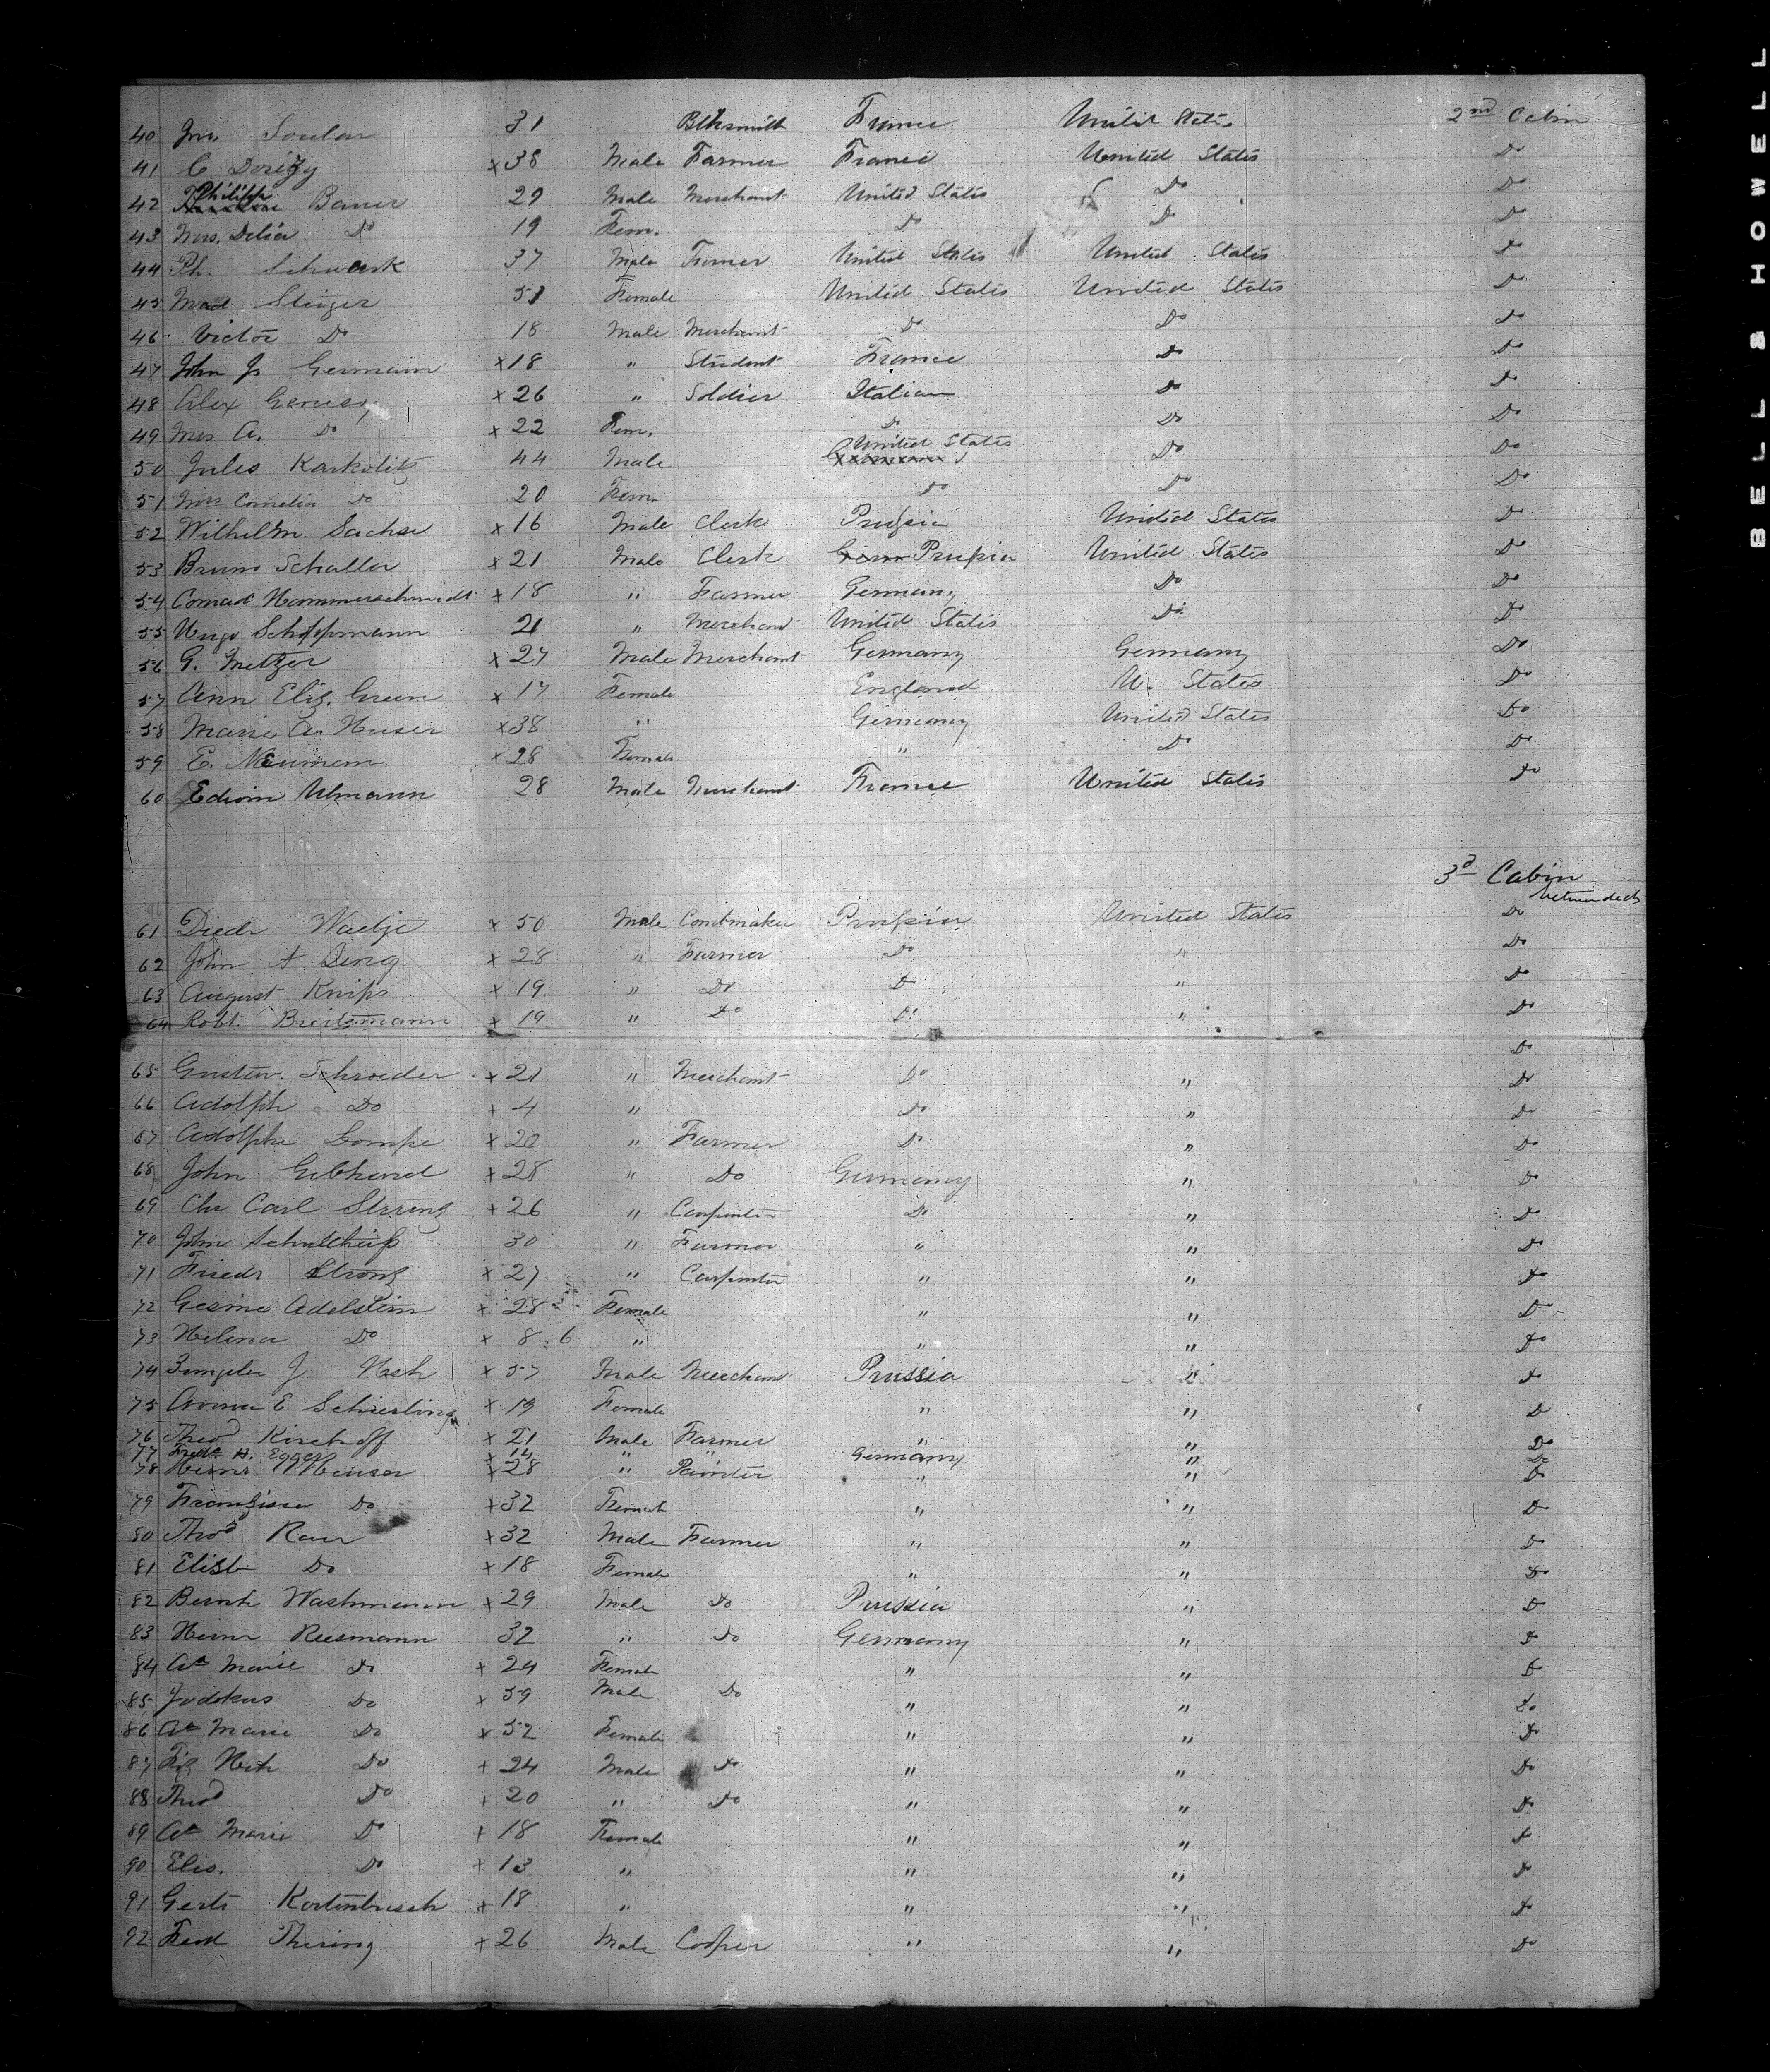 40 Soular 31 Blksmith France United States 2nd Cabin
41 C Dorizy x 38 Male Farmer France United States Do
42 Philipp Bauer 29 Male Merchant United States Do Do
43 Mrs. Delia Do 19 Fem. Do Do Do
44 Ph. Schwark 37 Male Farmer United States United States Do
45 Steiger 51 Female United States United States Do
46 Victor Do 18 Male Merchant Do Do Do
47 John J. Germain x 18 " Student France Do Do
48 Alex x 26 " Soldier Italian Do Do
49 Mrs A. Do x 22 Fem. Do Do Do
50 Jules Karkolitz 44 Male United States Do Do
51 Mrs Cornelia Do 20 Fem. Do Do Do
52 Wilhelm Sachse x 16 Male Clerk Prussia United States Do
53 Bruno Schaller x 21 Male Clerk Germ Prussia United States Do
54 Conrad Hammerschmidt x 18 " Farmer Germany Do Do
55 Hugo Schopmann 21 " Merchant United States Do Do
56 G. Metzer x 27 Male Merchant Germany Germany Do
57 Ann Eliz. Green x 17 Female England U. States Do
58 Marie A. Heuser x 38 " Germany United States Do
59 E. Neumann x 28 Female " Do Do
60 Edwin Ulmann 28 Male Merchant France United States Do
3d Cabin
between deck
61 Diedr Waetje x 50 Male Combmaker Prussia United States Do
62 John A. x 28 " Farmer Do " Do
63 August Knips x 19 " Do Do " Do
64 Robt. Breitmann x 19 " Do Do " Do
Do
65 Gustav. Schroeder x 21 " Merchant Do " Do
66 Adolph Do x 4 " Do " Do
67 Adolphe Lompe x 20 " Farmer Do " Do
68 John Gebhard x 28 " Do Germany " Do
69 Chr Carl Streng x 26 " Carpenter Do " Do
70 John Schultheiß 30 " Farmer " " Do
71 Friedr Streng x 27 " Carpenter " " Do
72 Gesine Adelstein x 28 Female " " Do
73 Helena Do x 8.6 " " " Do
74 J x 57 Male Merchant Prussia " Do
75 Anna E. Schierling x 19 Female " " Do
76 Theod Kirchoff x 21 Male Farmer " " Do
77 Fredr. H. Eggers x 14 " " Germany " Do
78 Heinr Heuser x 28 " Painter " " Do
79 Franzisca Do x 32 Female " " Do
80 Theod Rauer x 32 Male Farmer " " Do
81 Elisb Do x 18 Female " " Do
82 Bernh Wachmann x 29 Male Do Prussia " Do
83 Heinr Reesmann 32 " Do Germany " Do
84 Aa Marie Do x 24 Female " " Do
85 Jodokus Do x 59 Male Do " " Do
86 Aa Marie Do x 52 Female " " Do
87 Do x 24 Male Do " " Do
88 Theod Do x 20 " Do " " Do
89 Aa Marie Do x 18 Female " " Do
90 Elis. Do x 13 " " " Do
91 Gertr Kortenbusch x 18 " " " Do
92 Ferd Thering x 26 Male Cooper " " Do
BELL & HOWELL